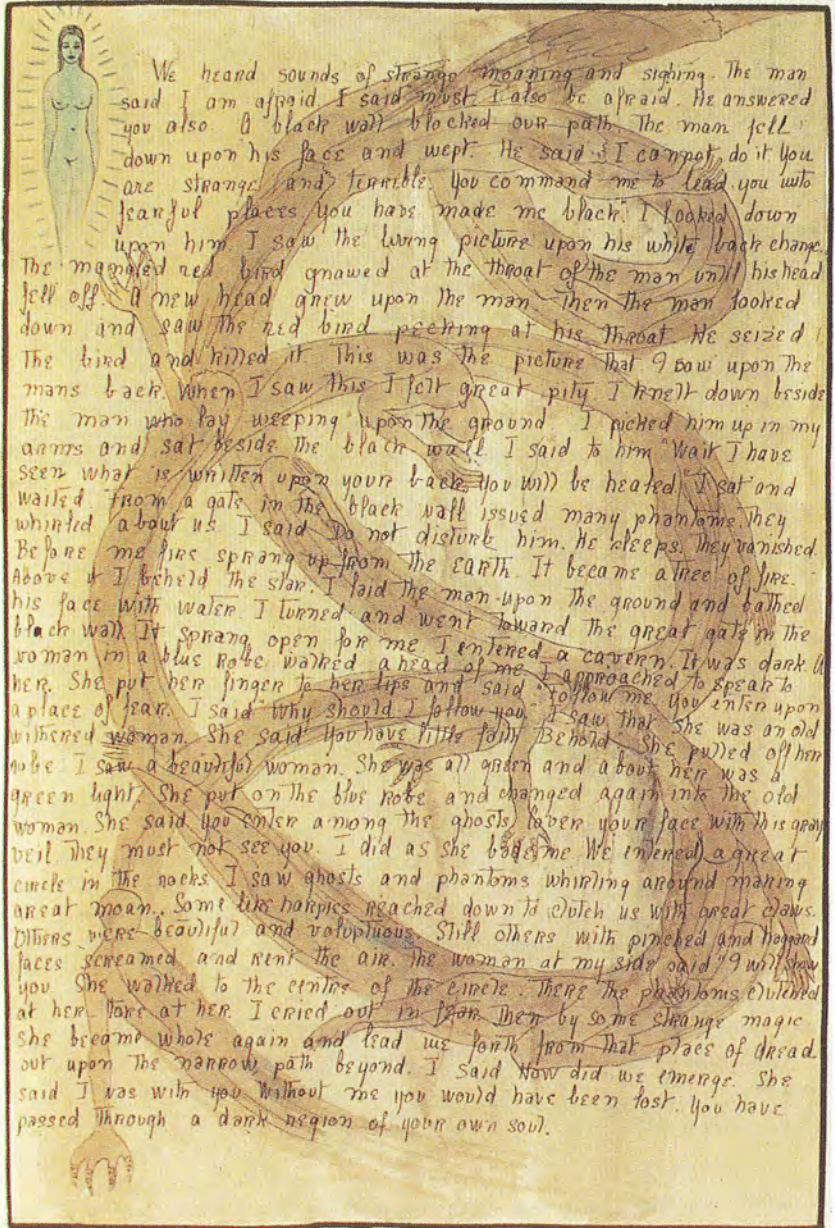 We heard sounds of strange moaning and sighing. The man
said I am afraid. I said must I also be afraid. He answered
you also. A black wall blocked our path. The man fell
down upon his face and wept. He said "I cannot do it You
are strange and terrible. You command me to lead you unto
fearful places you have made me black". I looked down
upon him. I saw the living picture upon his white back change.
The mangled red bird gnawed at the throat of the man until his head
fell off. A new head grew upon the man. Then the man looked
down and saw the red bird pecking at his throat. He seized
the bird and killed it. This was the picture that I saw upon the
mans back. When I saw this I felt great pity I knelt down beside
the man who lay weeping upon the ground. I picked him up in my
arms and sat beside the black wall. I said to him "Wait I have
seen what is written upon your back, you will be healed" I sat and
waited. From a gate in the black wall issued many phantoms. They
whirled about us. I said Do not disturb him. He sleeps. They vanished.
Before me fire sprang up from the earth. It became a tree of fire.
Above it I beheld the star. I laid the man upon the ground and bathed
his face with water. I turned and went toward the great gate in the
black wall. It sprang open for me I entered a cavern. It was dark. A
woman in a blue robe walked ahead of me I approached to speak to
her. She put her finger to her lips and said "Follow me you enter upon
a place of fear. I said "Why should I follow you" I saw that she was an old
withered woman. She said You have little faith Behold" She pulled off her
robe I saw a beautiful woman. She was all green and about her was a
green light. She put on the blue robe and changed again into the old
woman. She said you enter among the ghosts cover your face with this gray
veil. They must not see you. I did as she bade me We entered a great
circle in the rocks I saw ghosts and phantoms whirling around making
great moan. Some like harpies reached down to clutch us with great claws.
Others were beautiful and voluptuous. Still others with pinched and haggard
faces screamed and rent the air. The woman at my side said "I will show
you. She walked to the centre of the circle. There the phantoms clutched
at her. Tore at her. I cried out in fear Then by some strange magic
she became whole again and lead me forth from that place of dread.
out upon the narrow path beyond. I said How did we emerge. She
said I was with you Without me you would have been lost. You have
passed through a dark region of your own soul.